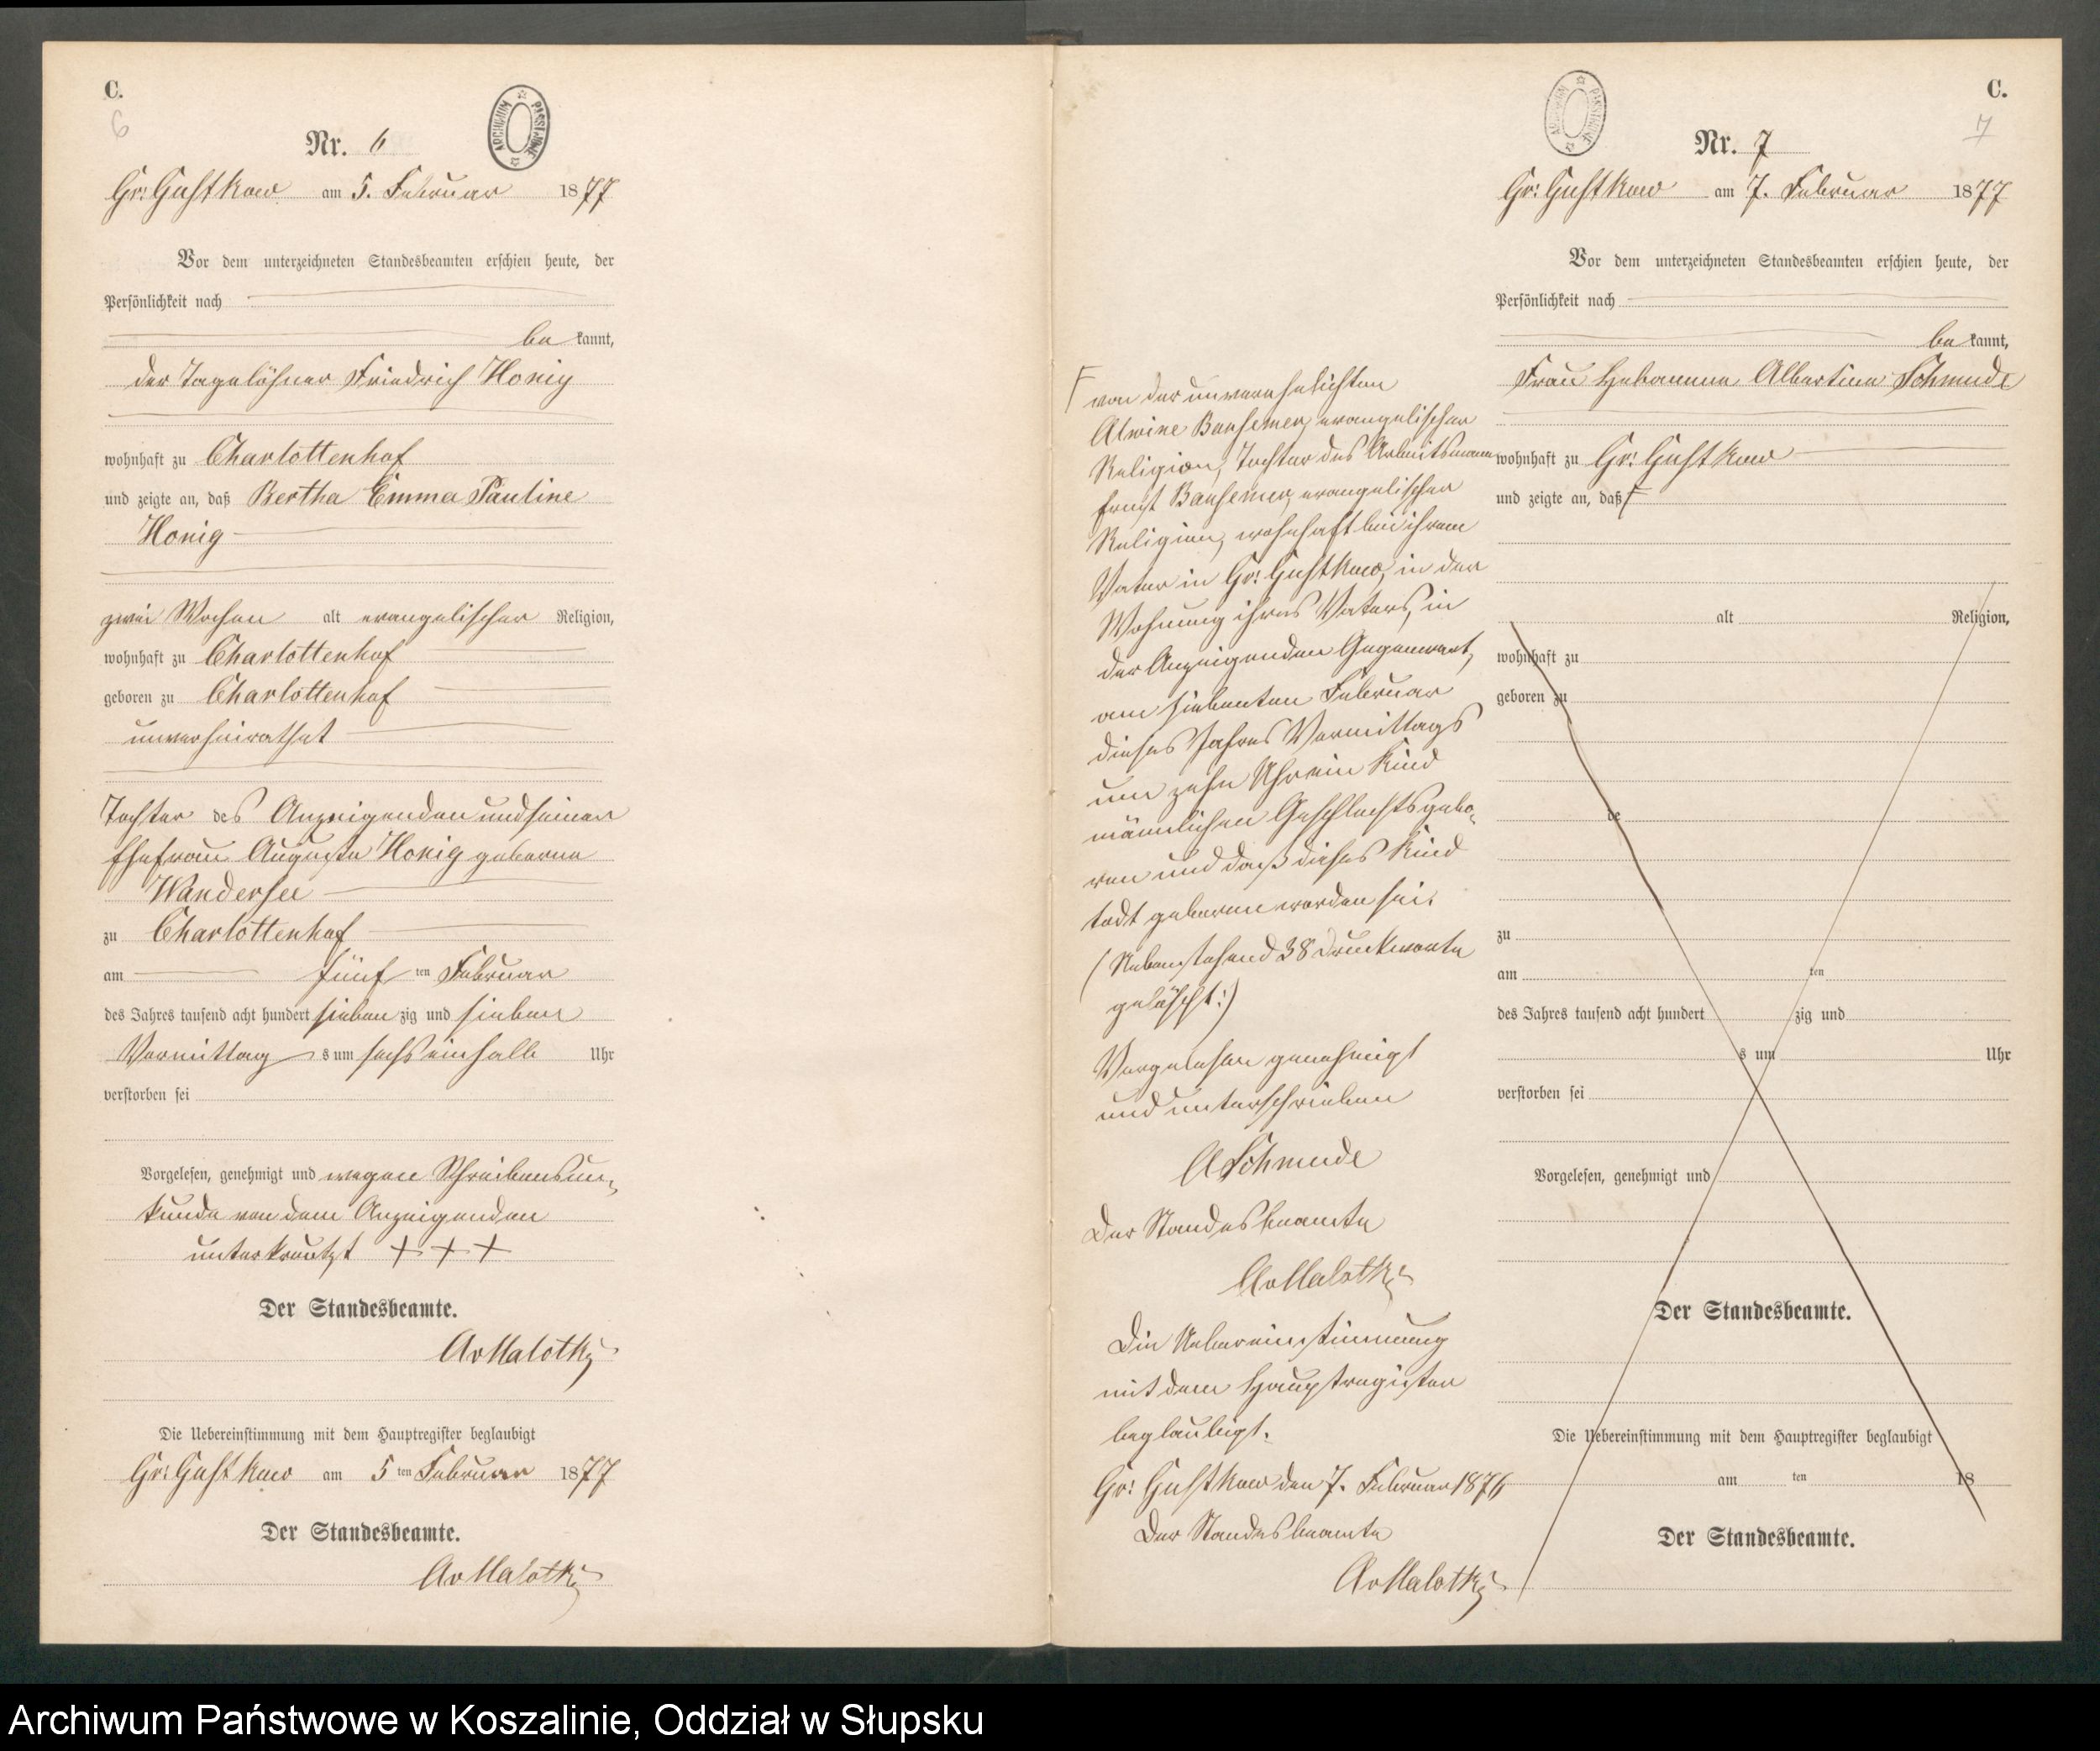 C.
6
ARCHIWUM PAŃSTWOWE
Nr. 6
Gr: Gustkow am 5. Februar 1877
Vor dem unterzeichneten Standesbeamten erschien heute, der
Persönlichkeit nach
be kannt,
der Tagelöhner Friedrich Honig
wohnhaft zu Charlottenhof
und zeigte an, daß Bertha Emma Pauline
Honig
zwei Wochen alt evangelischer Religion,
wohnhaft zu Charlottenhof
geboren zu Charlottenhof
unverheirathet
Tochter des Anzeigenden und seiner
Ehefrau Auguste Honig geborene
Wandersee
zu Charlottenhof
am fünf ten Februar
des Jahres tausend acht hundert sieben zig und sieben
Vormittag s um sechseinhalb Uhr
verstorben sei
Vorgelesen, genehmigt und wegen Schreibensun-
kunde von dem Anzeigenden
unterkreutzt + + +
Der Standesbeamte.
AvMalotki
Die Uebereinstimmung mit dem Hauptregister beglaubigt
Gr: Gustkow am 5 ten Februar 1877
Der Standesbeamte.
AvMalotki
C.
7
Nr. 7
Gr: Gustkow am 7. Februar 1877
Vor dem unterzeichneten Standesbeamten erschien heute, der
Persönlichkeit nach
be kannt,
Frau Hebamme Albertine Schmude
wohnhaft zu Gr: Gustkow
und zeigte an, daß F
alt Religion,
wohnhaft zu
geboren zu
de
zu
am ten
des Jahres tausend acht hundert zig und
s um Uhr
verstorben sei
Vorgelesen, genehmigt und
Der Standesbeamte.
Die Uebereinstimmung mit dem Hauptregister beglaubigt
am ten 18
Der Standesbeamte.
F von der unverehelichten
Alwine Bansemer, evangelischer
Religion, Tochter des Arbeitsmann
Ernst Bansemer, evangelischer
Religion, wohnhaft bei ihrem
Vater in Gr: Gustkow, in der
Wohnung ihres Vaters, in
der Anzeigenden Gegenwart,
am siebenten Februar
dieses Jahres Vormittags
um zehn Uhr ein Kind
männlichen Geschlechts gebo-
ren und daß dieses Kind
todt geboren worden sei.
(Nebenstehend 38 Druckworte
gelöscht:)
Vorgelesen genehmigt
und unterschrieben
ASchmude
Der Standesbeamte
AvMalotki
Die Uebereinstimmung
mit dem Hauptregister
beglaubigt.
Gr: Gustkow den 7. Februar 1876
Der Standesbeamte
AvMalotki
Archiwum Państwowe w Koszalinie, Oddział w Słupsku